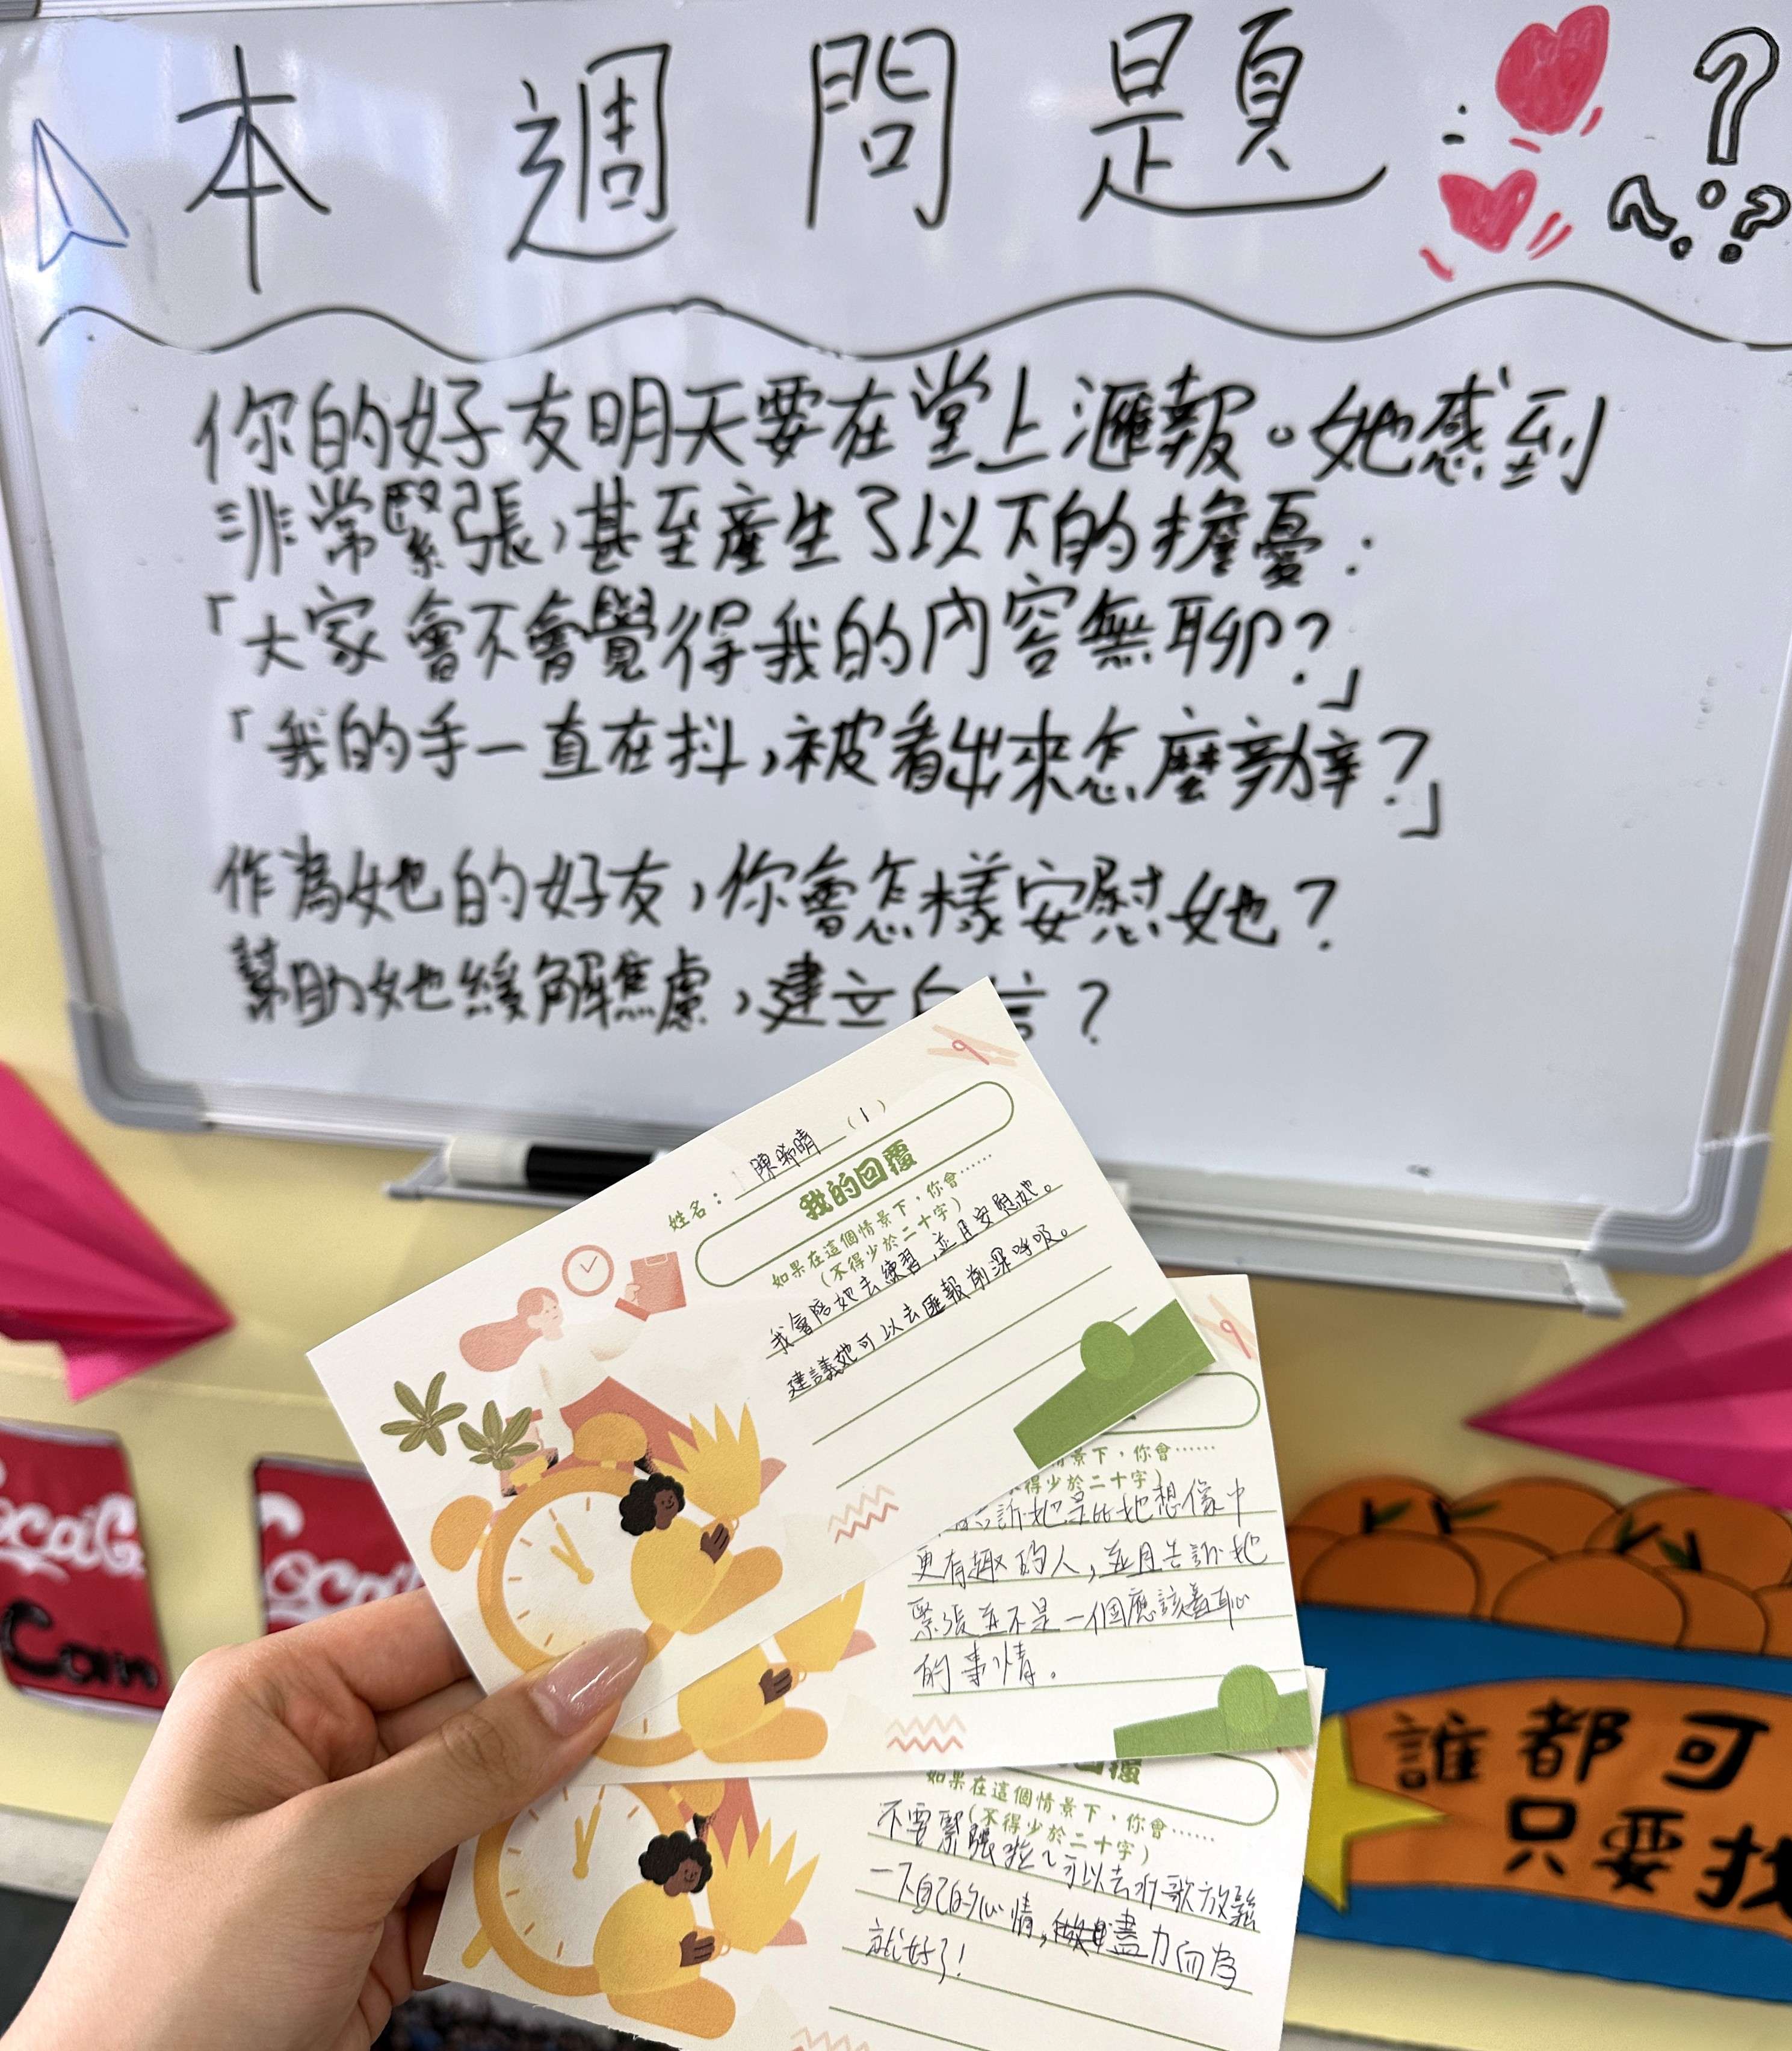 本週問題
你的好友明天要在堂上滙報。她感到
非常緊張,甚至產生了以下的擔憂:
「大家會不會覺得我的內容無聊?」
「我的手一直在抖,被看出來怎麼辦?」
作為她的好友,你會怎樣安慰她?
幫助她緩解焦慮,建立自信?
姓名: 陳晞晴 (1)
我的回覆
如果在這個情景下,你會……
(不得少於二十字)
我會陪她去練習,並且安慰她。
建議她可以去匯報前深呼吸。
情景下,你會……
得少於二十字)
告訴她是比她想像中
更有趣的人,並且告訴她
緊張並不是一個應該羞恥
的事情。
回覆
如果在這個情景下,你會……
(不得少於二十字)
不要緊張啦~可以去听歌放鬆
一下自己的心情,盡力而為
就好了!
誰都可
只要找
Com